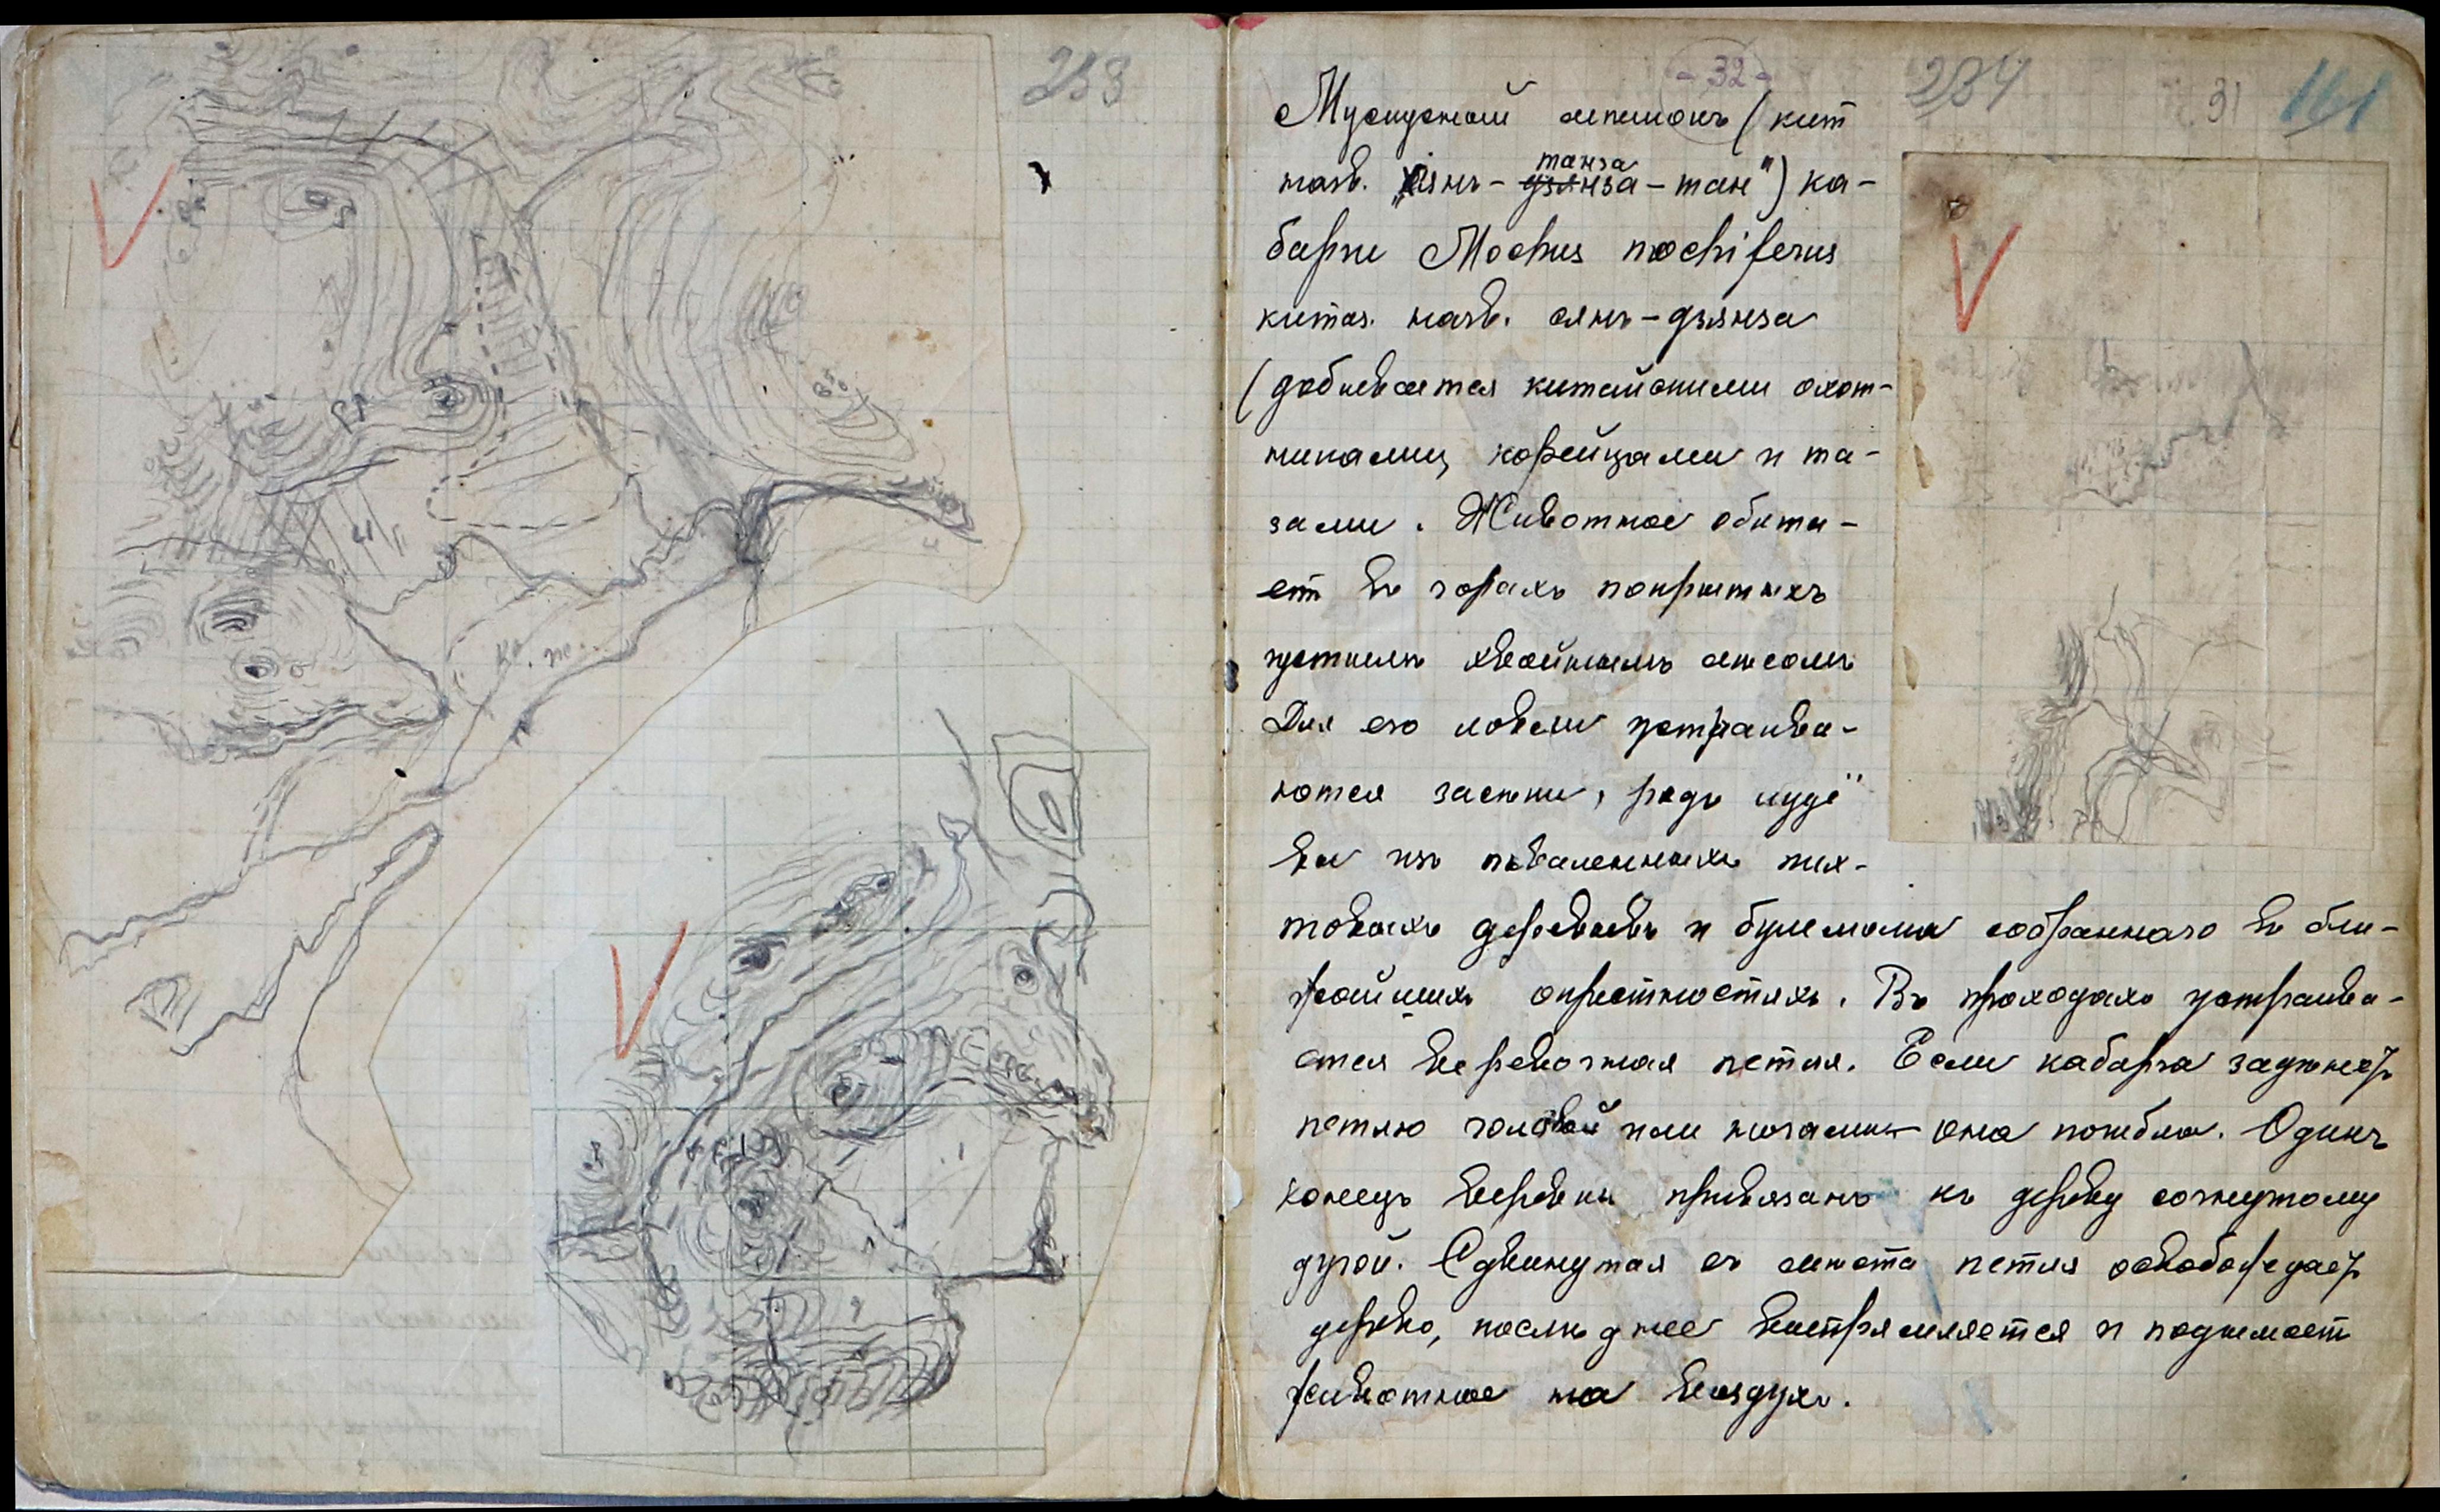 233
- 32 -
234
31
161
Мускусный мешокъ (кит
назв. „сянь-танза-тан") ка-
барги Moshus moschiferus
китаз. назв. сянъ-дзянза
(добывается китайскими охот-
никами, корейцами и та-
зами. Животное обита-
ет въ горахъ покрытыхъ
густымъ хвойнымъ лѣсомъ
Для его ловли устраива-
ются засѣки, родъ лудё
вы изъ поваленныхъ пих-
товыхъ деревьевъ и бурелома собраннаго въ бли-
жайшихъ окрестностяхъ. Въ проходахъ устраива-
ется веревочная петля. Если кабарга задѣнетъ
петлю головой или ногами – она погибла. Одинъ
конецъ веревки привязанъ къ дереву согнутому
дугой. Сдвинутая съ мѣста петля освобождаетъ
дерево, послѣднее выстрямляется и подымает
животное на воздухъ.